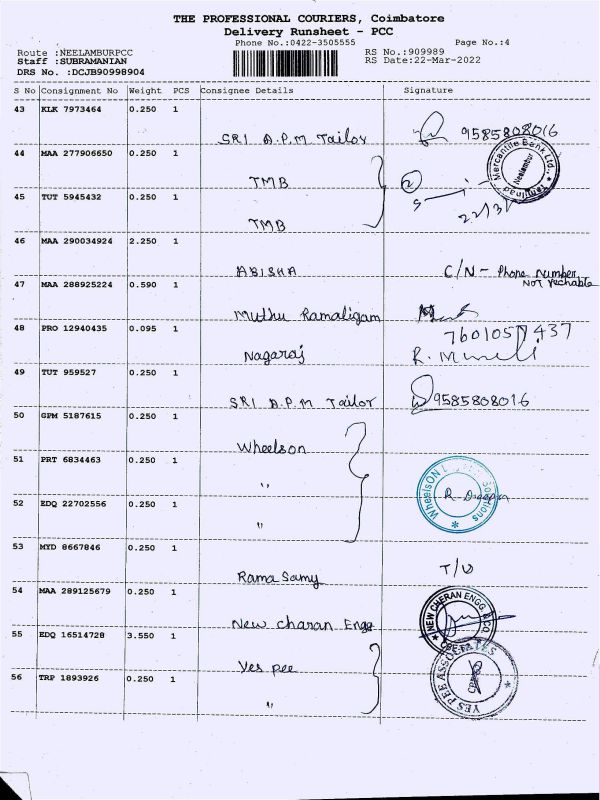 THE PROFESSIONAL COURIERS, Coimbatore
Delivery Runsheet - PCC
Phone No.:0422-3505555
Page No.:4
Route :NEELAMBURPCC
RS No.:909989
Staff :SUBRAMANIAN
RS Date:22-Mar-2022
DRS No. :DCJB90998904
S No Consignment No Weight PCS Consignee Details Signature
43 KLK 7973464 0.250 1
SRI A.P.M Tailor 9585808016
44 MAA 277906650 0.250 1
TMB
Mercantile Bank Ltd., * Tamilnad
Neelambur
45 TUT 5945432 0.250 1
TMB 22/3/
46 MAA 290034924 2.250 1
ABISHA C/N - Phone number
NOT rechable
47 MAA 288925224 0.590 1
Muthu Ramaligam
48 PRO 12940435 0.095 1
7601057437
Nagaraj
49 TUT 959527 0.250 1
SRI A.P.M Tailor 9585808016
50 GPM 5187615 0.250 1
Wheelson
51 PRT 6834463 0.250 1
"
WheelsON
52 EDQ 22702556 0.250 1
"
53 MYD 8667846 0.250 1
Rama Samy T/D
54 MAA 289125679 0.250 1
New Charan Engg
NEW CHERAN ENGG. & CO. *
55 EDQ 16514728 3.550 1
Yes pee
YES PEE ASSOCIATES *
56 TRP 1893926 0.250 1
"